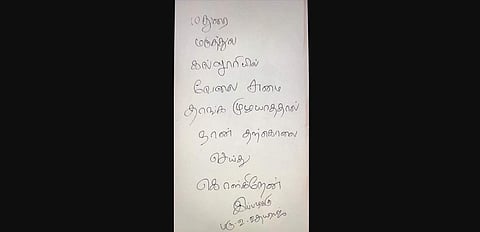 மதுரை
மருத்துவ
கல்லூரியில்
வேலை சுமை
தாங்க முடியாததால்
நான் தற்கொலை
செய்து
கொள்கிறேன்
இப்படிக்கு